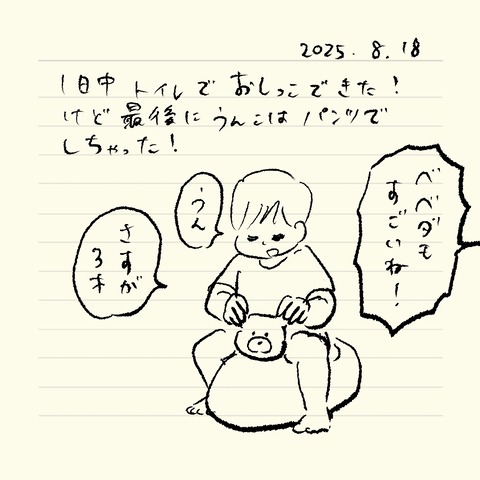 2025.8.18
1日中トイレでおしっこできた!
けど最後にうんこはパンツで
しちゃった!
べべダも
すごいね!
うん
さすが
3才